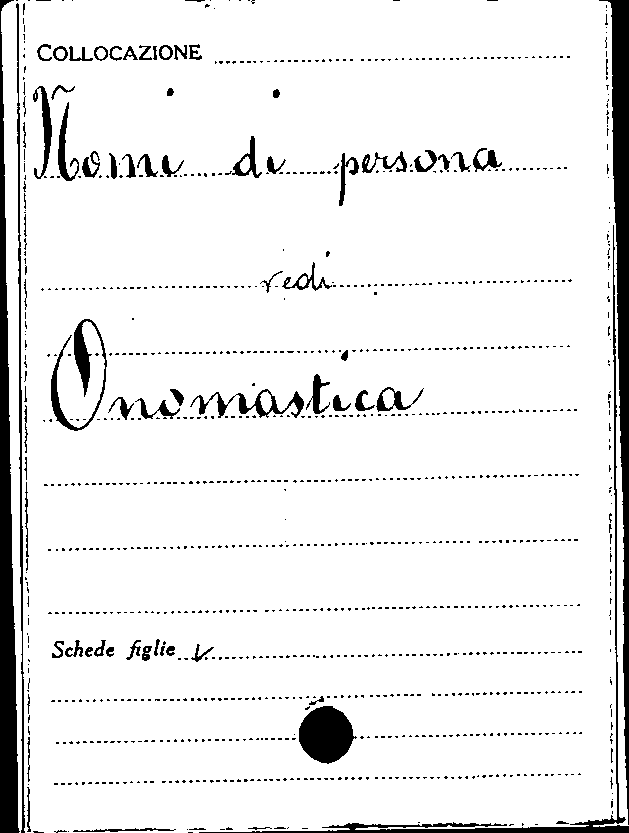 COLLOCAZIONE
Nomi di persona
vedi
Onomastica
Schede figlie V